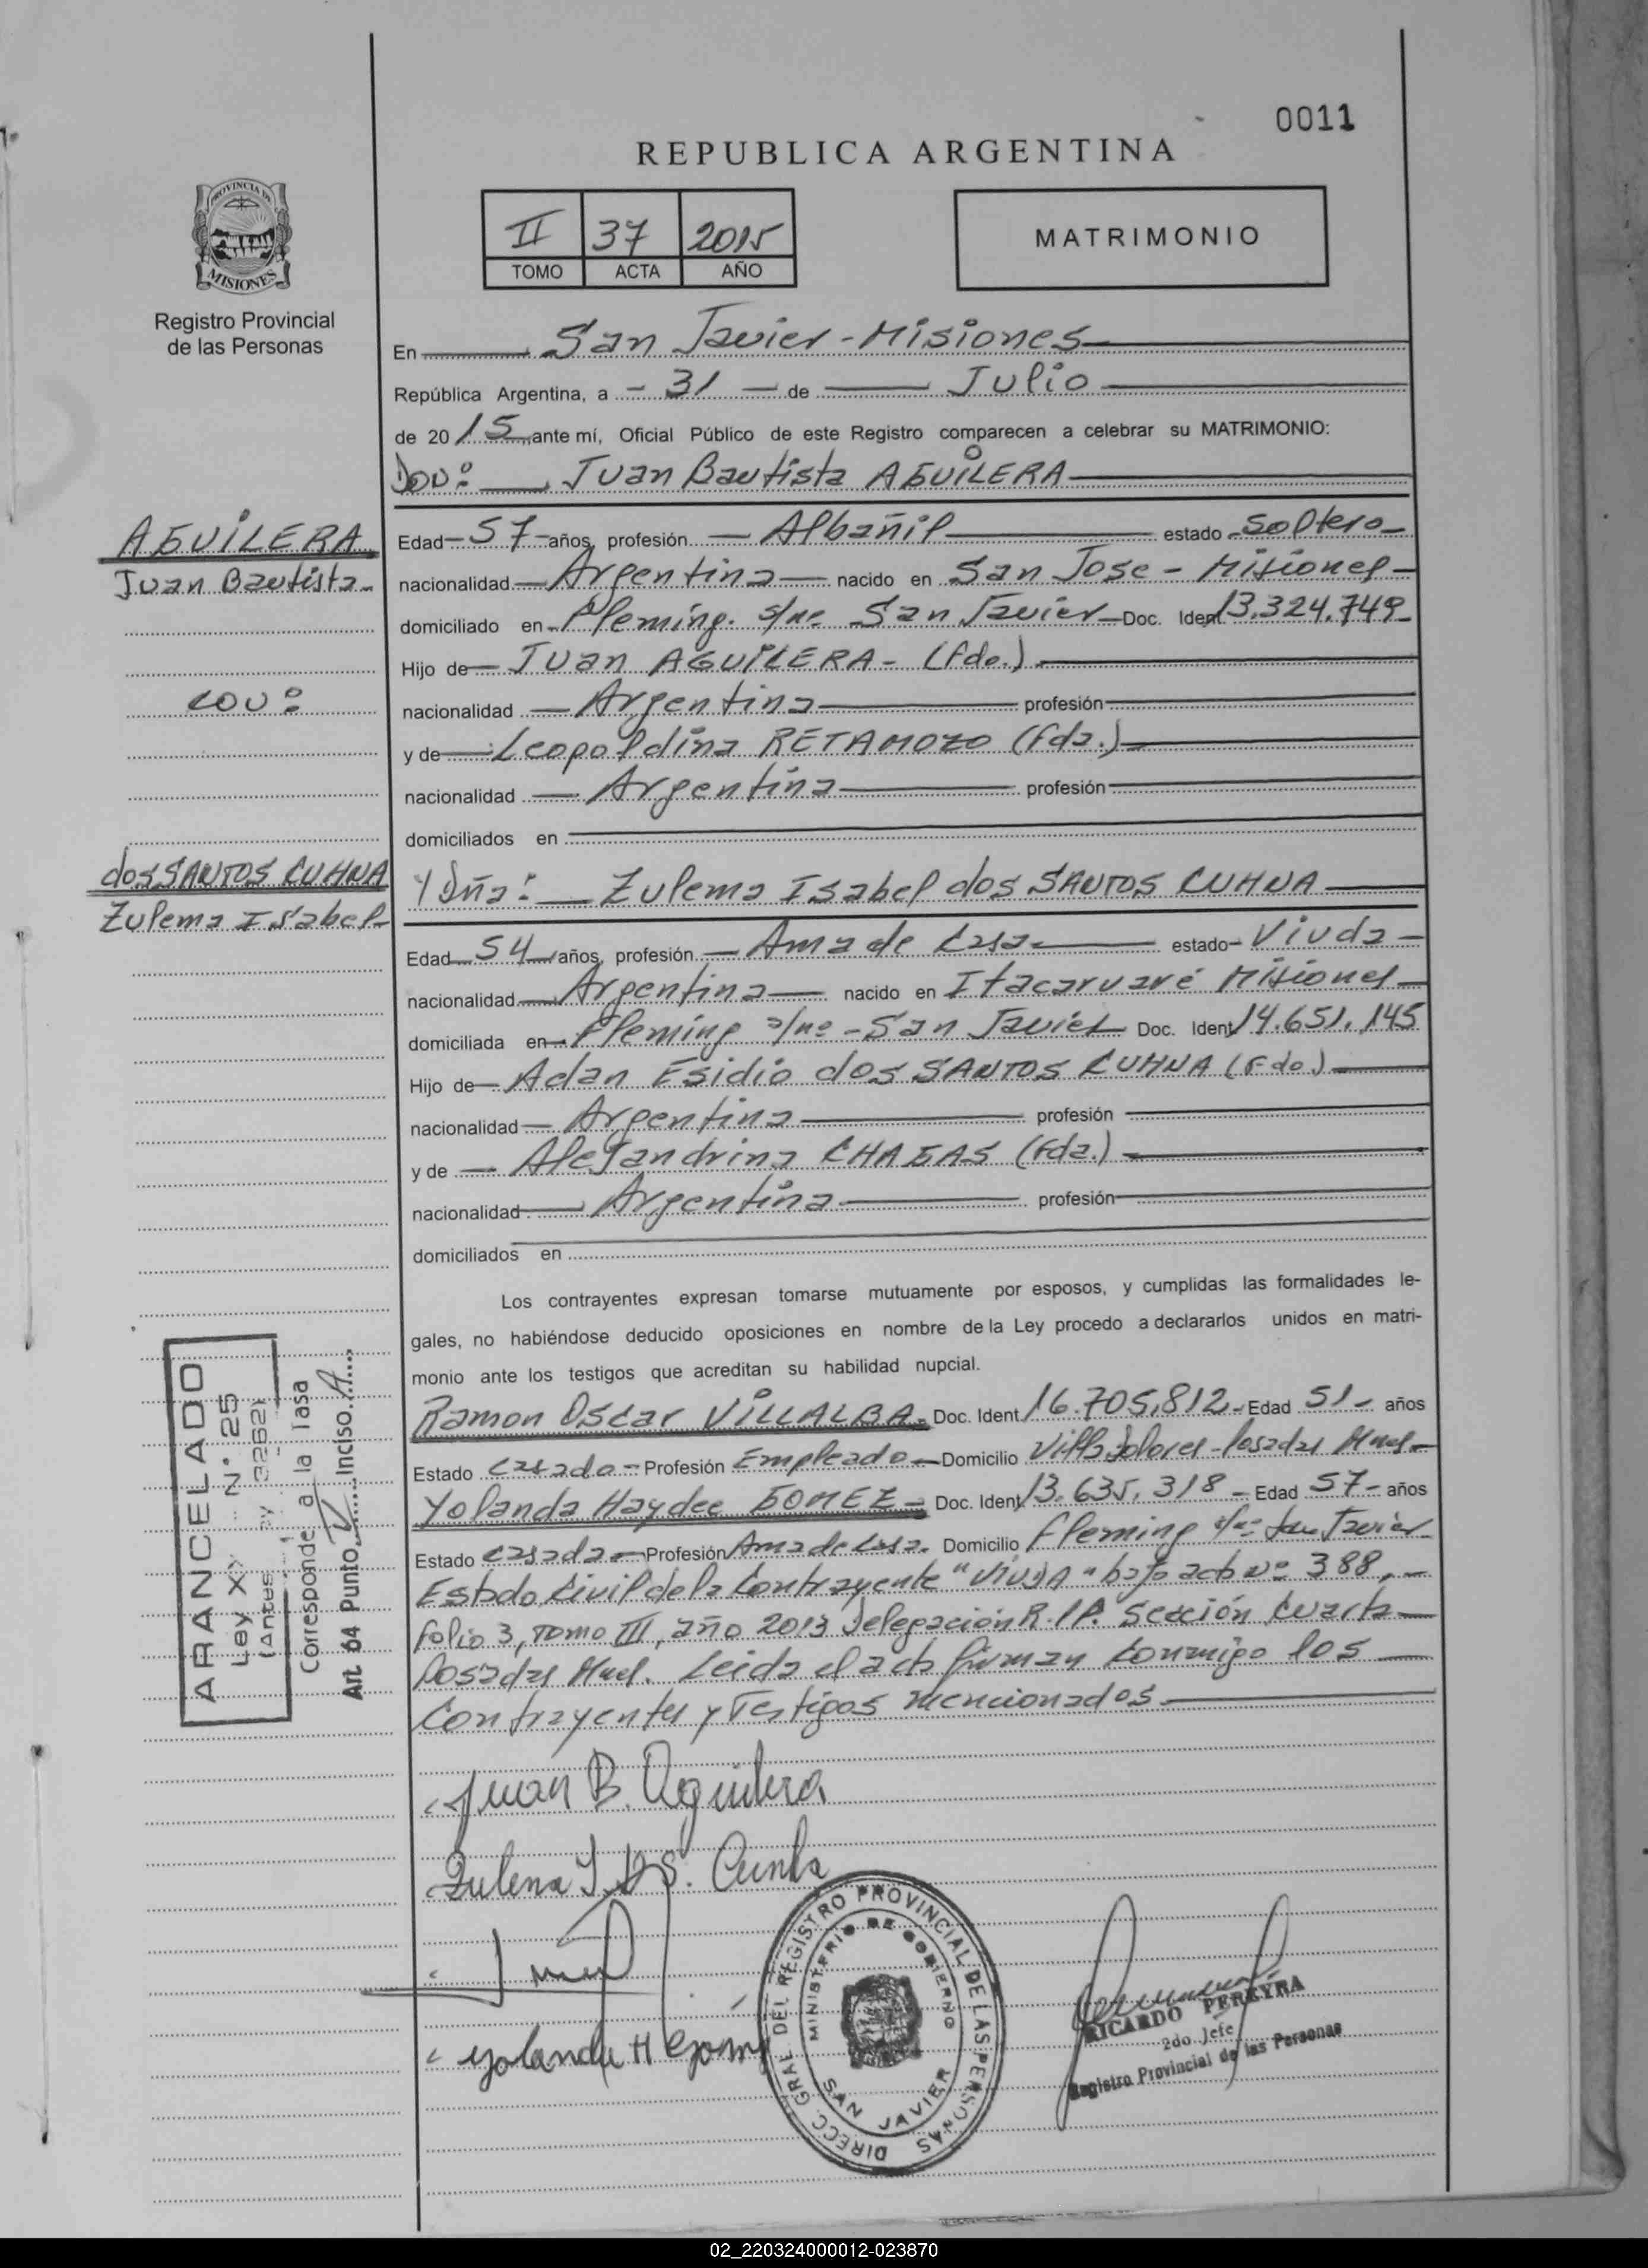 0011
REPUBLICA ARGENTINA
PROVINCIA DE
MISIONES
Registro Provincial
de las Personas
II 37 2015
TOMO ACTA AÑO
MATRIMONIO
En San Javier - Misiones
República Argentina, a - 31 - de Julio
de 2015 ante mí, Oficial Público de este Registro comparecen a celebrar su MATRIMONIO:
Don: Juan Bautista AGUILERA
AGUILERA
Juan Bautista
con:
dos SANTOS CUHNA
Zulema Isabel
Edad 57 años, profesión Albañil estado Soltero
nacionalidad Argentina nacido en San Jose - Misiones
domiciliado en Fleming. s/nº San Javier Doc. Ident 13.324.749
Hijo de Juan AGUILERA - (fdo.)
nacionalidad Argentina profesión
y de Leopoldina RETAMOZO (fda.)
nacionalidad Argentina profesión
domiciliados en
Y Dña: Zulema Isabel dos SANTOS CUHNA
Edad 54 años, profesión Ama de Casa estado Viuda
nacionalidad Argentina nacido en Itacaruaré Misiones
domiciliada en Fleming s/nº - San Javier Doc. Ident 14.651.145
Hijo de Adan Esidio dos SANTOS CUHNA (Fdo.)
nacionalidad Argentina profesión
y de Alejandrina CHAGAS (Fda.)
nacionalidad Argentina profesión
domiciliados en
Los contrayentes expresan tomarse mutuamente por esposos, y cumplidas las formalidades le-
gales, no habiéndose deducido oposiciones en nombre de la Ley procedo a declararlos unidos en matri-
monio ante los testigos que acreditan su habilidad nupcial.
Ramon Oscar VILLALBA Doc. Ident 16.705.812 - Edad 51 - años
Estado Casado - Profesión Empleado - Domicilio Villa Dolores - Posadas Mnes.
Yolanda Haydee GOMEZ Doc. Ident 13.635.318 - Edad 57 - años
Estado Casada - Profesión Ama de Casa. Domicilio Fleming s/nº San Javier
Estado Civil de la Contrayente "VIUDA" bajo acta Nº 388,
folio 3, Tomo III, año 2013 Delegación R.P. Sección Cuarta
Posadas Mnes. Leida el acta firman conmigo los
Contrayentes y Testigos mencionados
ARANCELADO
Ley X N° 25
(Antes
Corresponde a la Tasa
Art. 64 Punto Inciso A
Juan B. Aguilera
Zulema I. D S. Cunha
Yolanda H Gomez
DIRECC. GRAL DEL REGISTRO PROVINCIAL DE LAS PERSONAS
MINISTERIO DE GOBIERNO
SAN JAVIER
RICARDO PEREYRA
2do Jefe
Registro Provincial de las Personas
02_220324000012-023870